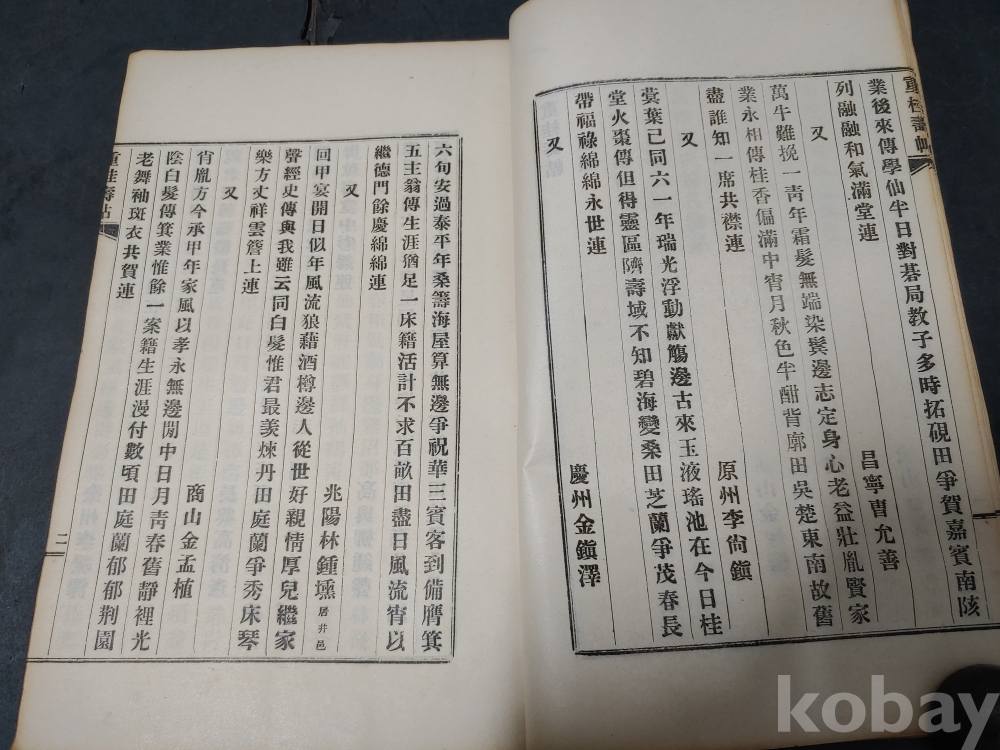 業後來傳學仙半日對碁局教子多時拓硯田爭賀嘉賓南陔
列融融和氣滿堂連
昌寧曺允善
又
萬牛難挽一靑年霜髮無端染鬂邊志定身心老益壯胤賢家
業永相傳桂香偏滿中宵月秋色半酣背廓田吳楚東南故舊
盡誰知一席共襟連
原州李尙鎭
又
蓂葉已同六一年瑞光浮動獻觴邊古來玉液瑤池在今日桂
堂火棗傳但得靈區隮壽域不知碧海變桑田芝蘭爭茂春長
帶福祿綿綿永世連
慶州金鎭澤
又
六旬安過泰平年桑籌海屋算無邊爭祝華三賓客到備膺箕
五主翁傳生涯猶足一床籍活計不求百畝田盡日風流宵以
繼德門餘慶綿綿連
兆陽林鍾壎 居井邑
又
回甲宴開日似年風流狼藉酒樽邊人從世好親情厚兒繼家
聲經史傳與我雖云同白髮惟君最羡煉丹田庭蘭爭秀床琴
樂方丈祥雲簷上連
商山金孟植
又
肖胤方今承甲年家風以孝永無邊閒中日月靑春舊靜裡光
陰白髮傳箕業惟餘一案籍生涯漫付數頃田庭蘭郁郁荆園
老舞袖斑衣共賀連
二
kobay